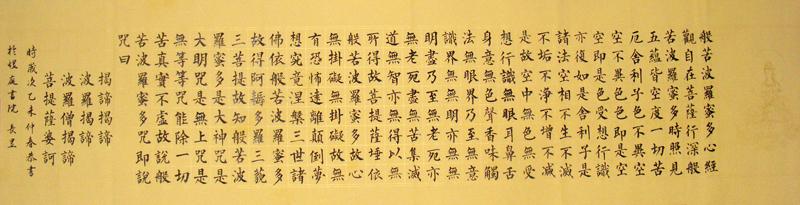 般若波羅蜜多心經
觀自在菩薩行深般
若波羅蜜多時照見
五蘊皆空度一切苦
厄舍利子色不異空
空不異色色即是空
空即是色受想行識
亦復如是舍利子是
諸法空相不生不滅
不垢不淨不增不減
是故空中無色無受
想行識無眼耳鼻舌
身意無色聲香味觸
法無眼界乃至無意
識界無無明亦無無
明盡乃至無老死亦
無老死盡無苦集滅
道無智亦無得以無
所得故菩提薩埵依
般若波羅蜜多故心
無掛礙無掛礙故無
有恐怖遠離顛倒夢
想究竟涅槃三世諸
佛依般若波羅蜜多
故得阿耨多羅三藐
三菩提故知般若波
羅蜜多是大神咒是
大明咒是無上咒是
無等等咒能除一切
苦真實不虛故說般
若波羅蜜多咒即說
咒曰
揭諦揭諦
波羅揭諦
波羅僧揭諦
菩提薩婆訶
時歲次乙未仲春恭書
於庭書院